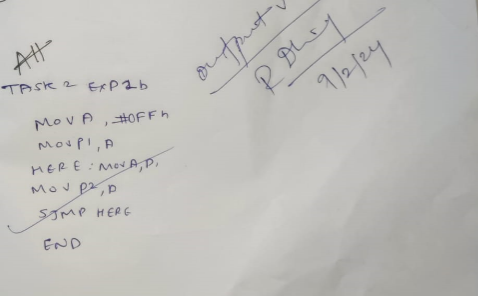 TASK 2 EXP1b
MOV A, #0FFh
MOV P1, A
HERE: MOV A, P1
MOV P2, D
SJMP HERE
END
output
9/2/24